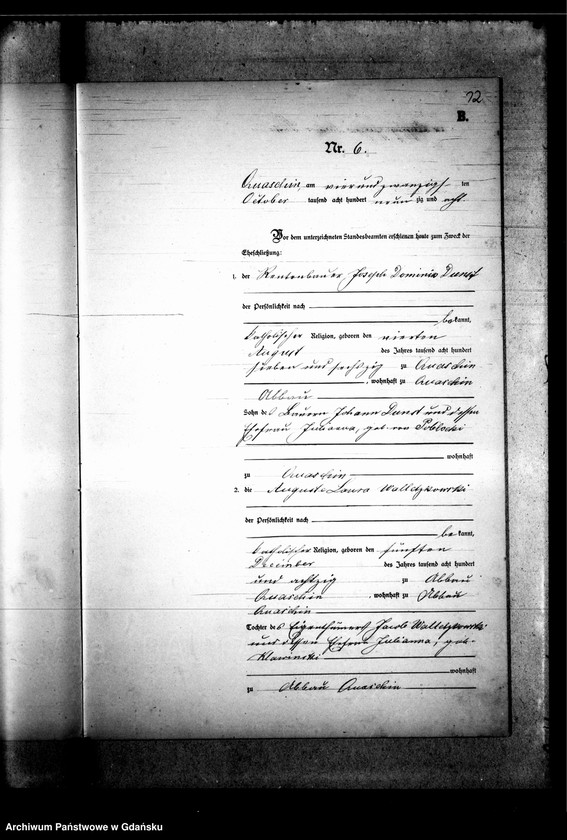 12
B.
Nr. 6.
Quaschin am vier und zwanzigsten
October tausend acht hundert neun zig und acht
Vor dem unterzeichneten Standesbeamten erschienen heute zum Zweck der
Eheschließung:
1. der Rentenbauer Joseph Dominic Dunst
der Persönlichkeit nach
bekannt,
katholischer Religion, geboren den vierten
August des Jahres tausend acht hundert
sieben und sechszig zu Quaschin
, wohnhaft zu Quaschin
Abbau
Sohn des Bauern Johann Dunst und dessen
Ehefrau Julianna, geb. von Poblocki
wohnhaft
zu Quaschin
2. die Auguste Laura Walletzkowski
der Persönlichkeit nach
bekannt,
katholischer Religion, geboren den fünften
December des Jahres tausend acht hundert
und achtzig zu Abbau
Quaschin, wohnhaft zu Abbau
Quaschin
Tochter des Eigenthümers Jacob Walletzkowski
und dessen Ehefrau Julianna, geb.
Klawinski
wohnhaft
zu Abbau Quaschin
Archiwum Państwowe w Gdańsku